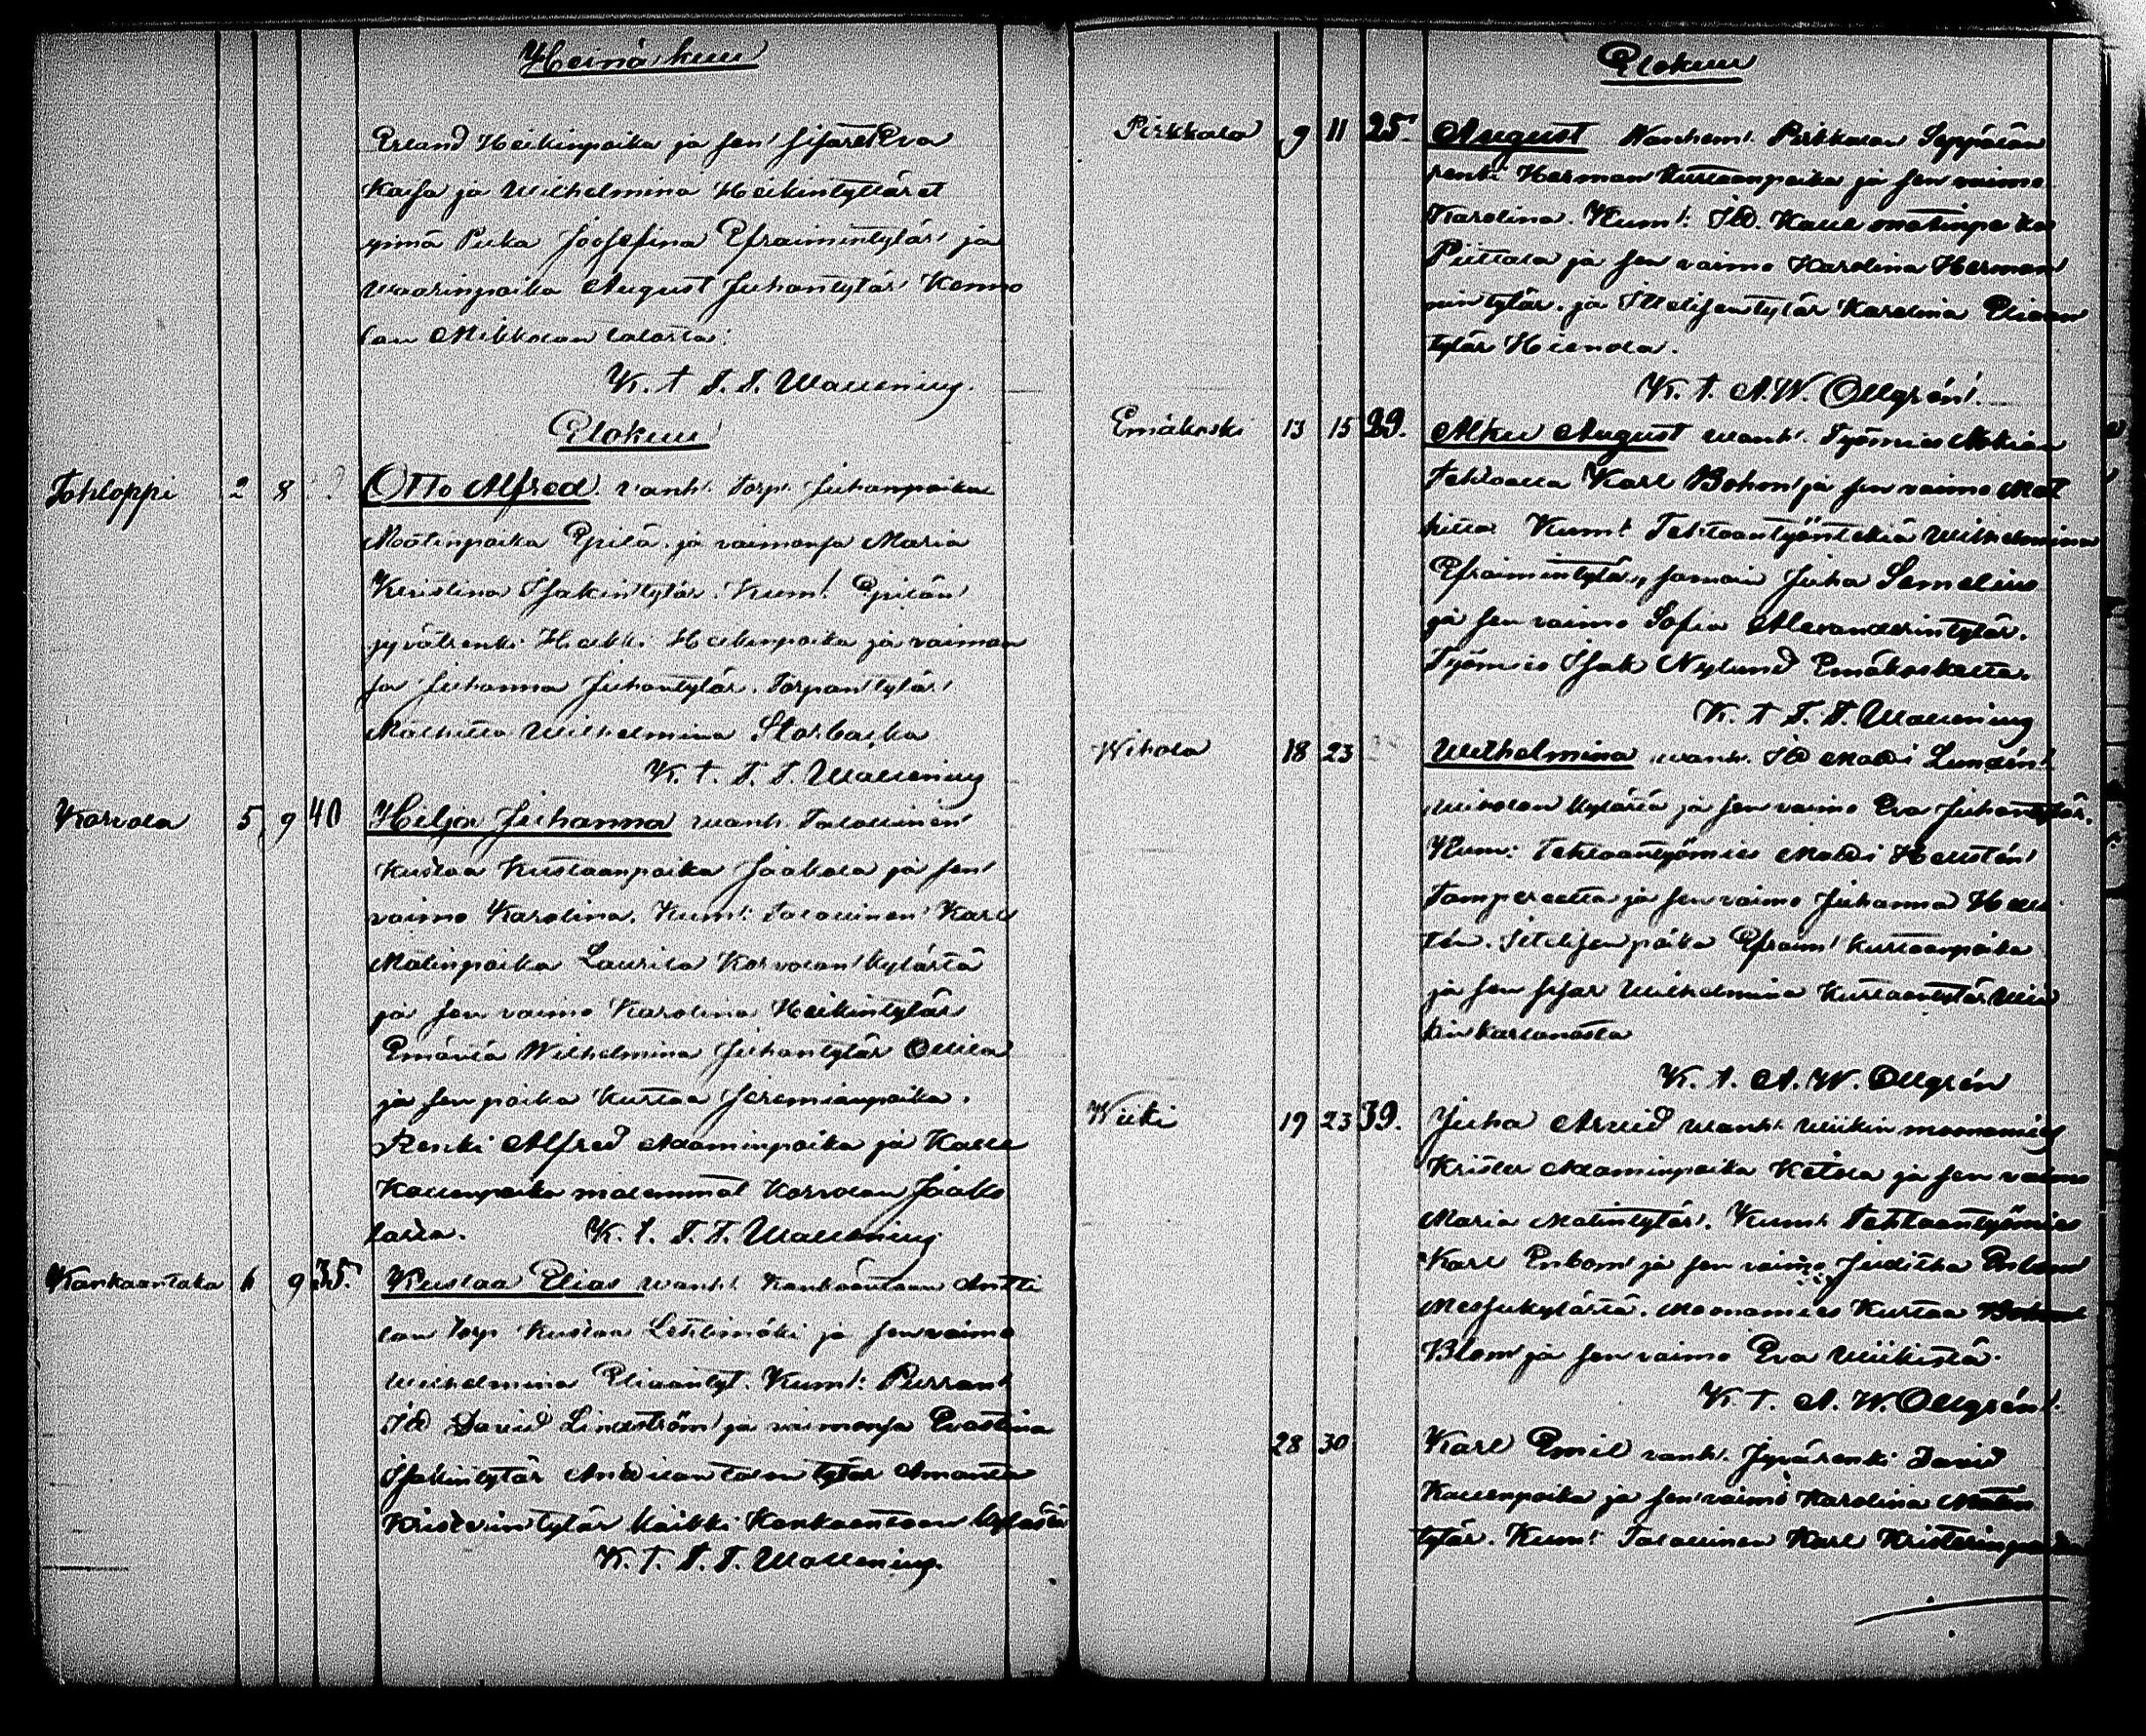 Heinäkuu
Erland Heikinpoika ja sen sisaret Eva
Kaisa ja Wilhelmina Heikintyttäret
piika Joosefina Efraimintytär ja
August Juhantytär Kenno
lan Mikkolan talosta.
K. t. F. F. Wallenius.
Elokuu
Tohloppi 2 8 Otto Alfred. vanh. torp. Juhanpoika
Epilä ja vaimonsa Maria
Kristina Isakintytär. Kum. Epilän
jyvätrenki Heikki Heikinpoika ja vaimon
sa Juhanna Juhantytär. Torpantytär
Mathilta Wilhelmina Storbacka
K. t. F. F. Wallenius
Korvola 5 9 40 Hilja Juhanna wanh. Talollinen
Kustaa Kustaanpoika Jaakola ja sen
vaimo Karolina. Kum: Talollinen Karl
Matinpoika Laurila Korvolan kylästä
ja sen vaimo Karolina Heikintytär
Emäntä Wilhelmina Juhantytär Ollila
ja sen poika Kustaa Jeremianpoika.
Renki Alfred Adaminpoika ja Kalle
Kallenpoika molemmat Korvolan Jaako
lasta. K. t. F. F. Wallenius
Kankaantaka 6 9 35. Kustaa Elias wanh. Kankaantaan Antti
lan torp Kustaa Lehtimäki ja sen vaimo
Wilhelmina Eliaantyt. Kum:
Itl David Lindström ja vaimonsa Evastina
Isakintytär talon tytär Amanta
Kristerintytär kaikki Kankaantaan kylästä
K. t. F. F. Wallenius.
Elokuu
Pirkkala 9 11 25. August Wanhem. Pirkkalan Seppälän
renki Herman Kustaanpoika ja sen vaimo
Karolina. Kum: Itl. Kalle Matinpoika
Piettala ja sen vaimo Karolina Herman
nin tytär. ja Itsellisentytär Karolina Eliaan
tytär
K. t. A. W. Ollgrén.
Emäkoski 13 15 29. Alku August wanh. Työmies Nokian
Tehtaalla Karl Bohm ja sen vaimo Mat
hilta Kum. Tehtaantyöntekiä Wilhelmina
Efraimintytär, Juha Semelius
ja sen vaimo Sofia Alexanderintytär.
Työmies Isak Nylund Emäkoskelta.
K. t. F. F. Wallenius
Wihola 18 23 Wilhelmina wanh. Itl Matti Lundén
Wiholan kylästä ja sen vaimo Eva Juhantytär.
Kum: tehtaantyömies Matti Hellstén
Tampereelta ja sen vaimo Juhanna Hells
tén. Itsellisenpoika Efraim Kustaanpoika
ja sen sisar Wilhelmina Kustaantytär Wii
kin kartanosta
K. t. A. W. Ollgrén
Wiiki 19 23 39. Juha Arvid wanh. Wiikin moonamies
Krister Adaminpoika Ketola ja sen vaimo
Maria Matintytär. Kum. tehtaantyömies
Karl Enbom ja sen vaimo Juditha Enbom
Messukylästä. Moonamies Kustaa
Blom ja sen vaimo Eva Wiikistä.
K. t. A. W. Ollgrén.
28 30 Karl Emil vanh. Jyvärenki David
Kallenpoika ja sen vaimo Karolina Matin
tytär. Kum. Talollinen Karl Kristerinpoika